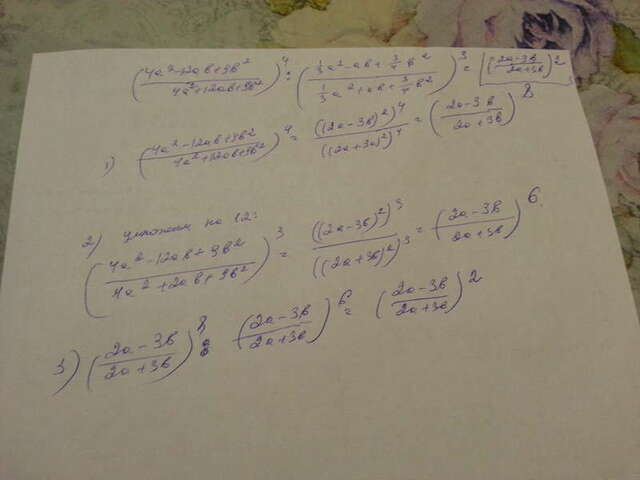 ((4a²-12ab+9b²)/(4a²+12ab+9b²))⁴ : ((1/3 a²-ab+3/4 b²)/(1/3 a²+ab+3/4 b²))³ = ((2a-3b)/(2a+3b))²
1) ((4a²-12ab+9b²)/(4a²+12ab+9b²))⁴ = ((2a-3b)²)⁴/((2a+3b)²)⁴ = ((2a-3b)/(2a+3b))⁸
2) умножим на 12:
((4a²-12ab+9b²)/(4a²+2ab+9b²))³ = ((2a-3b)²)³/((2a+3b)²)³ = ((2a-3b)/(2a+3b))⁶.
3) ((2a-3b)/(2a+3b))⁸ : ((2a-3b)/(2a+3b))⁶ = ((2a-3b)/(2a+3b))²